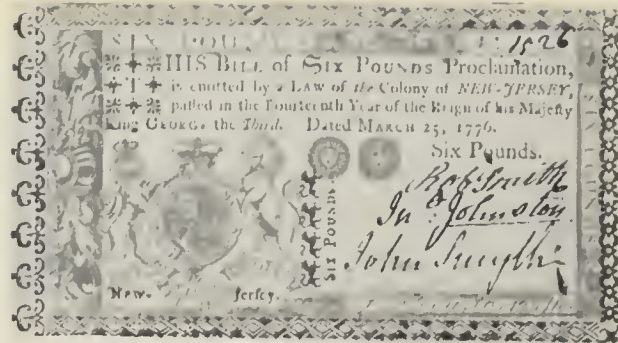 SIX POU 1526
THIS BILL of SIX POUNDS Proclamation,
is emitted by a LAW of the Colony of NEW-JERSEY,
passed in the Fourteenth Year of the Reign of his Majesty
King GEORGE the Third. Dated MARCH 25, 1776.
Six Pounds.
SIX POUNDS
Rob Smith
Jn. Johnston
John Smyth
New- Jersey.